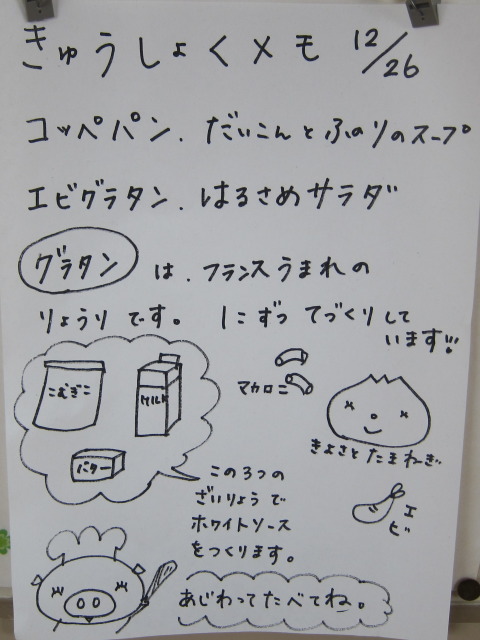 きゅうしょくメモ 12/26
コッペパン. だいこんとふのりのスープ
エビグラタン. はるさめサラダ
グラタン は. フランスうまれの
りょうりです。 1こずつ てづくりして
います!!!
こむぎこ
ミルク
バター
マカロニ
きよさとたまねぎ
エビ
この3つの
ざいりょうで
ホワイトソース
をつくります。
あじわってたべてね。